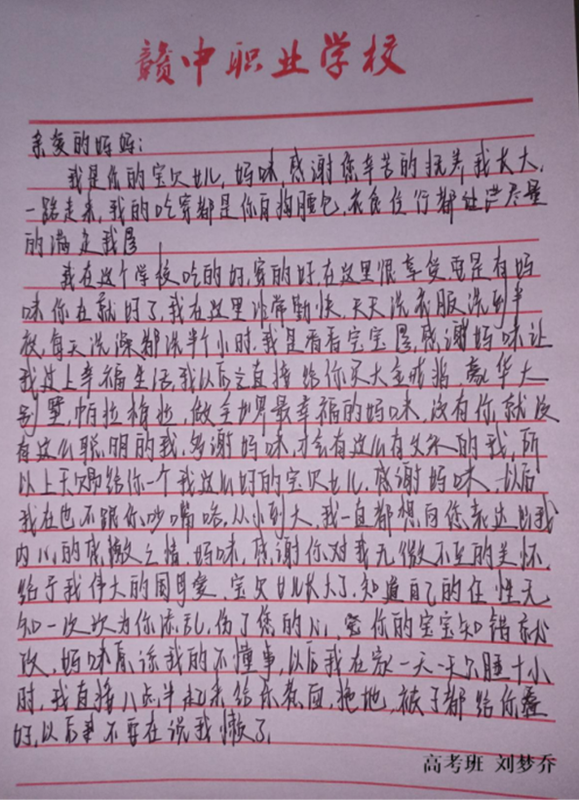 赣中职业学校
亲爱的妈妈:
我是你的宝贝女儿,妈咪感谢你辛苦的抚养我长大,
一路走来,我的吃穿都是你自掏腰包,衣食住行都让尽量
的满足我
我在这个学校吃的好,穿的好,在这里很享受要是有妈
咪你在就好了,我在这里非常愉快,天天洗衣服洗到半
夜,每天洗澡都洗半个小时,我是看看宝宝,感谢妈咪让
我过上幸福生活,我以后会直接给你买大金戒指,豪华大
别墅,帕拉梅拉,做全世界最幸福的妈咪,没有你,就没
有这么聪明的我,多谢妈咪,才会有这么有文采的我,所
以上天赐给你一个我这么好的宝贝女儿,感谢妈咪,以后
我在也不跟你吵嘴啥,从小到大,我一直都想向您表达出我
内心的感激之情,妈咪,感谢你对我无微不至的关怀,
给予我伟大的母爱,宝贝女儿长大了,知道自己的任性无
知一次次为你添乱,伤了您的心,爱你的宝宝知错就
改,妈咪原谅我的不懂事,以后我在家一天一天只睡十小
时,我直接八点半起来给你煮面,拖地,被子都给你叠
好,以后不要在说我懒了,
高考班 刘梦乔